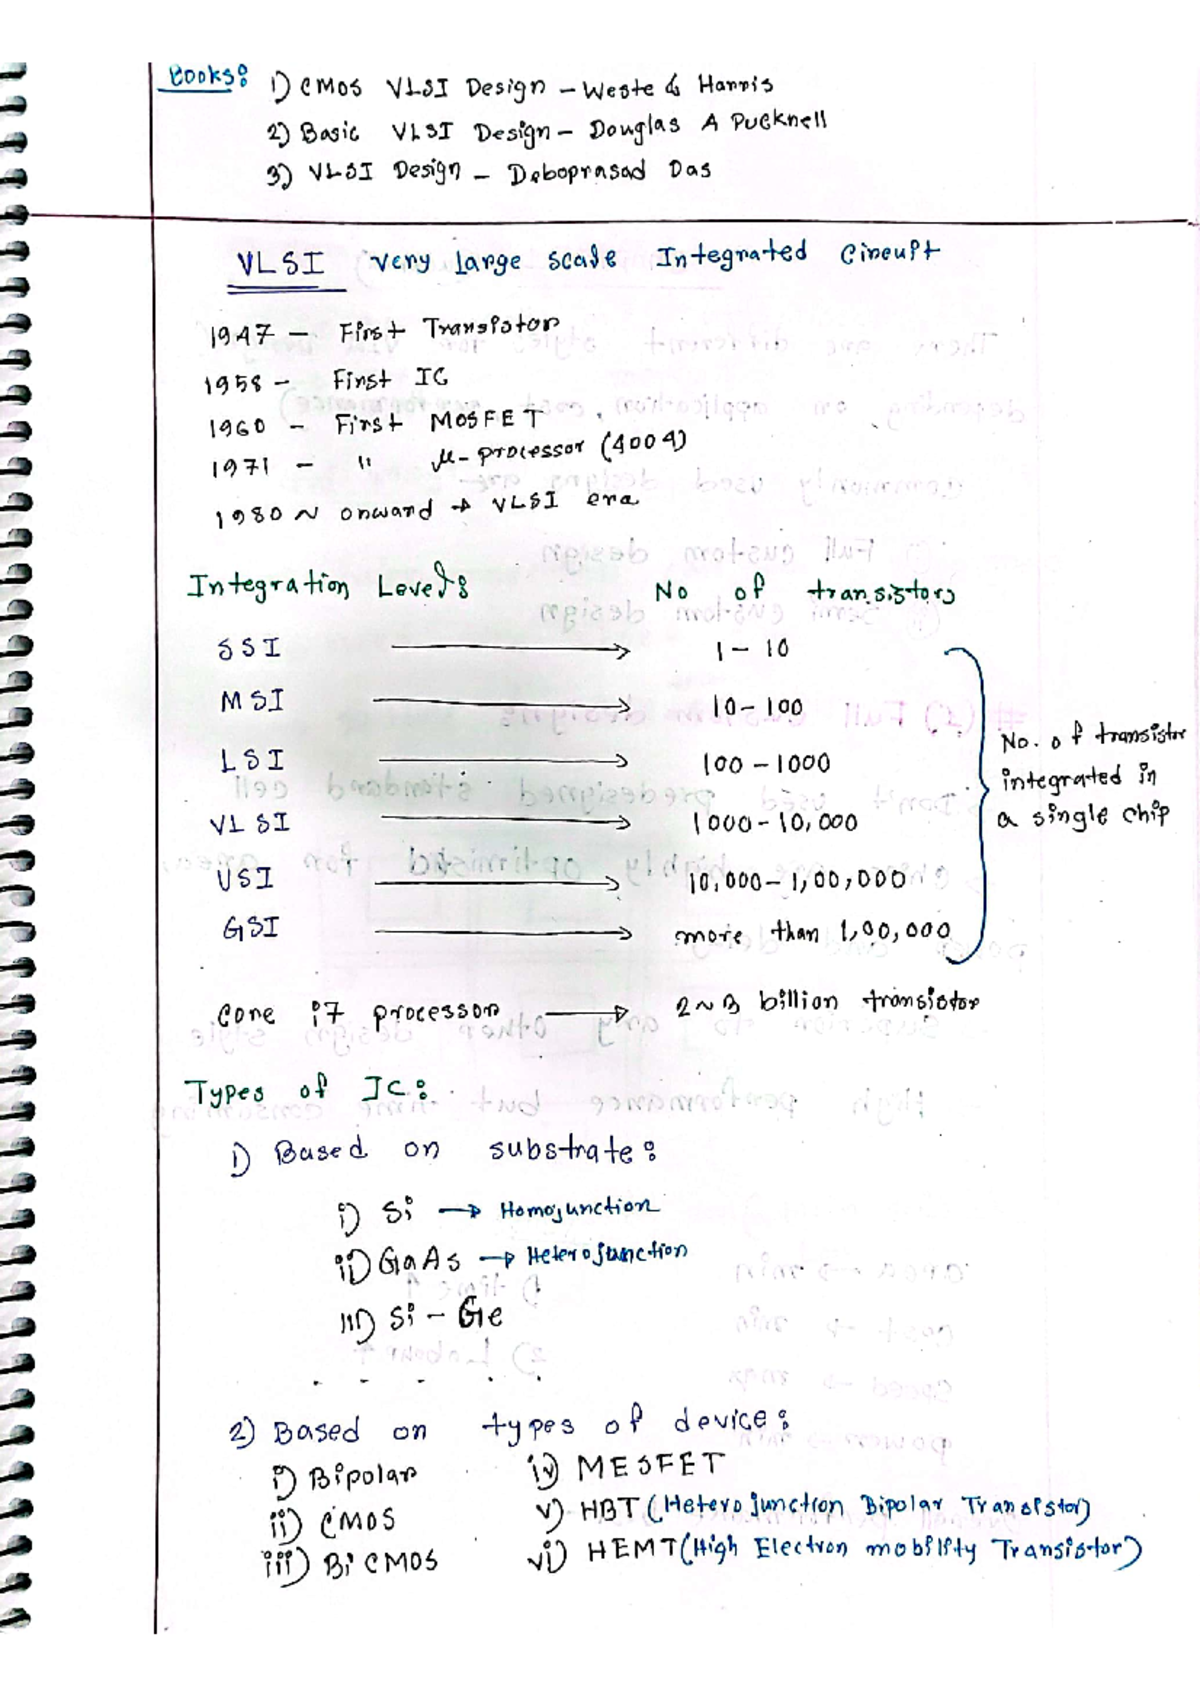 Books: 1) CMOS VLSI Design - Weste & Harris
2) Basic VLSI Design - Douglas A Pucknell
3) VLSI Design - Deboprasad Das
VLSI Very large scale Integrated Circuit
1947 - First Transistor
1958 - First IC
1960 - First MOSFET
1971 - " μ-processor (4004)
1980 ~ onward → VLSI era
Integration Levels: No of transistors
SSI → 1 - 10
MSI → 10 - 100
LSI → 100 - 1000
VLSI → 1000 - 10,000
USI → 10,000 - 1,00,000
GSI → more than 1,00,000
No. of transistor
integrated in
a single chip
Core i7 processor → 2 ~ 3 billion transistor
Types of IC:
1) Based on substrate:
i) Si → Homojunction
ii) GaAs → Heterojunction
iii) Si - Ge
- - - - -
2) Based on types of device:
i) Bipolar iv) MESFET
ii) CMOS v) HBT (Heterojunction Bipolar Transistor)
iii) Bi CMOS vi) HEMT (High Electron mobility Transistor)